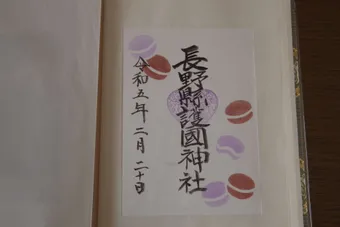 長野縣護國神社
令和五年二月二十日